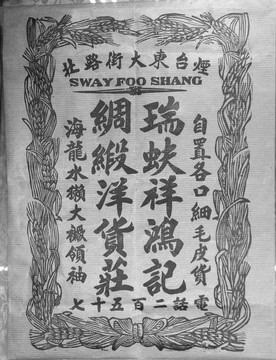 煙台東大街路北
SWAY FOO SHANG
自置各口細毛皮貨
瑞蚨祥鴻記
綢緞洋貨莊
海龍水獺大領袖
電話二百五十七